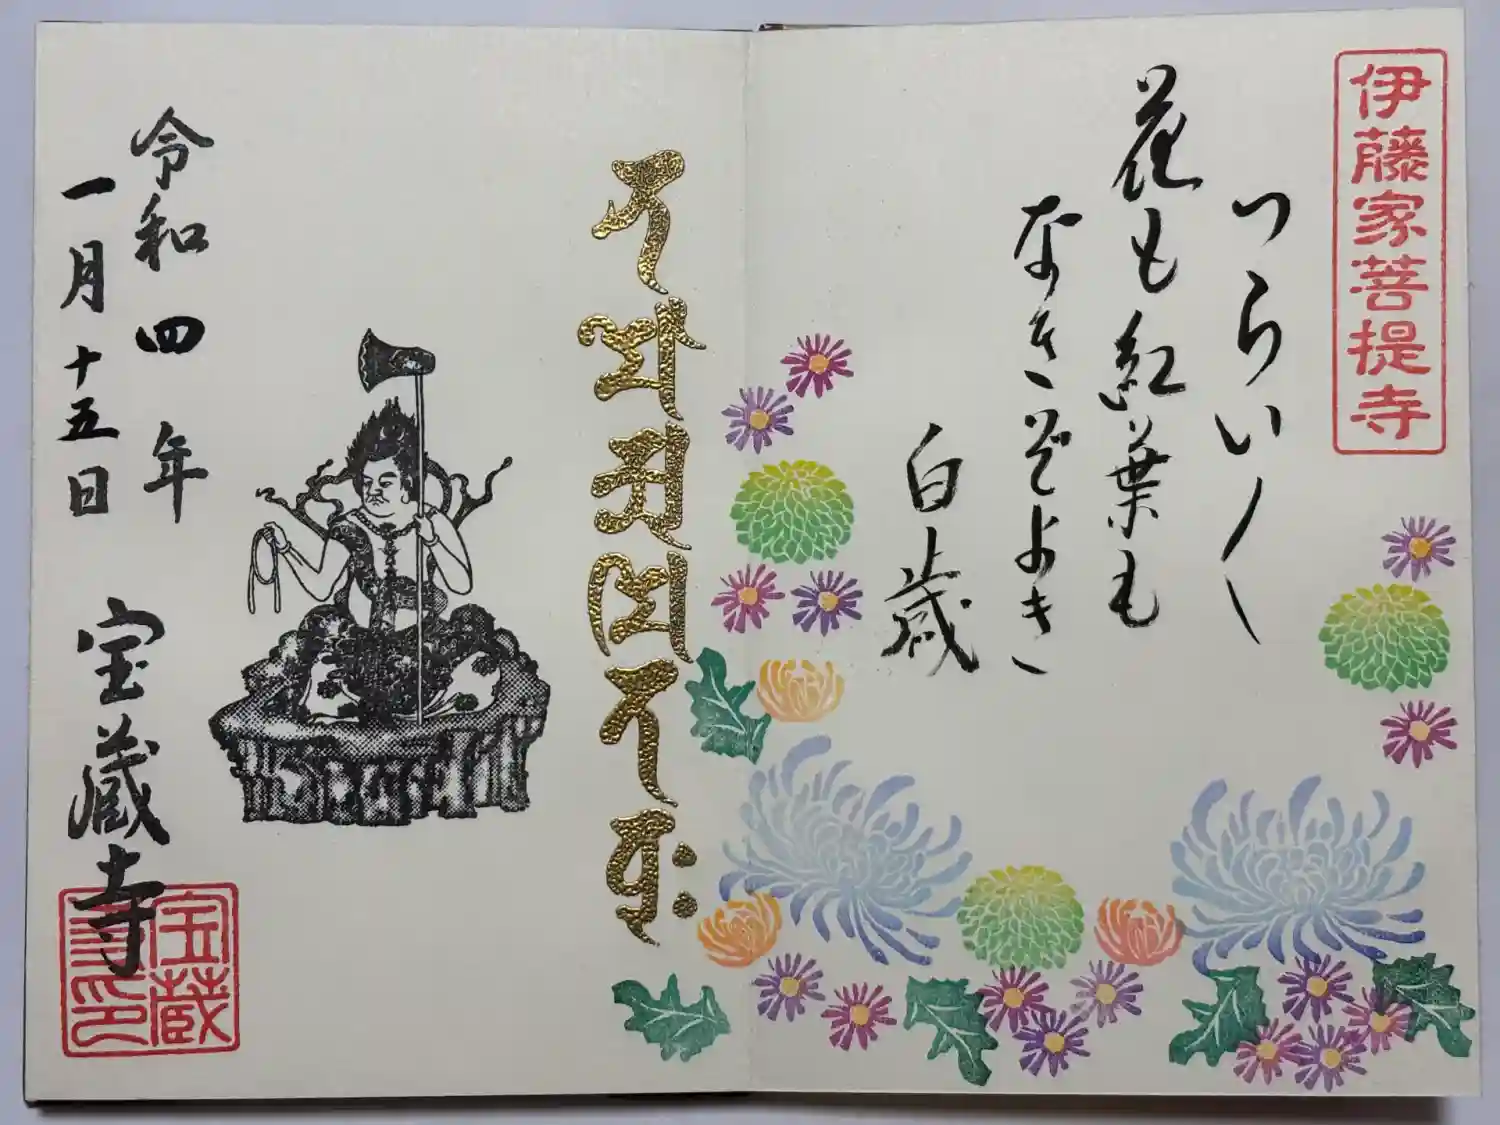 伊藤家菩提寺
つらい〱
花も紅葉も
なきぞよき
白歳
令和四年
一月十五日
宝蔵寺
宝蔵寺印